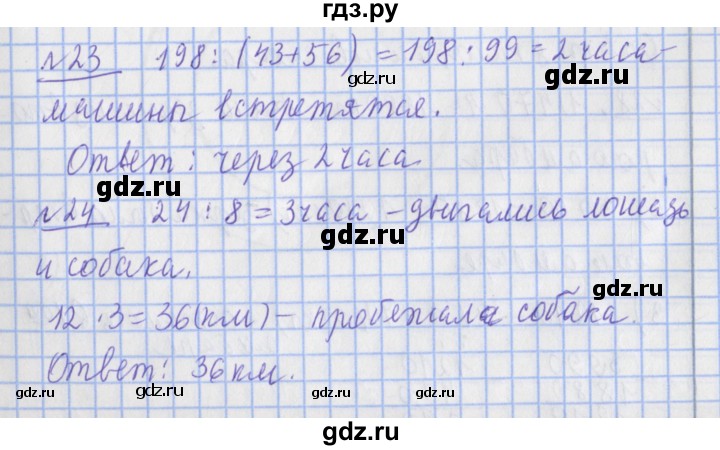 гдз.ру
№23 198 : (43+56) = 198 : 99 = 2 часа -
gdz.ru
машины встретятся.
gdz.ru
Ответ: через 2 часа.
gdz.ru
№24 24 : 8 = 3 часа - двигались лошадь
gdz.ru
и собака.
gdz.ru
12 · 3 = 36 (км) - пробежала собака.
Ответ: 36 км.
gdz.ru gdz.ru gdz.ru gdz.ru
gdz.ru